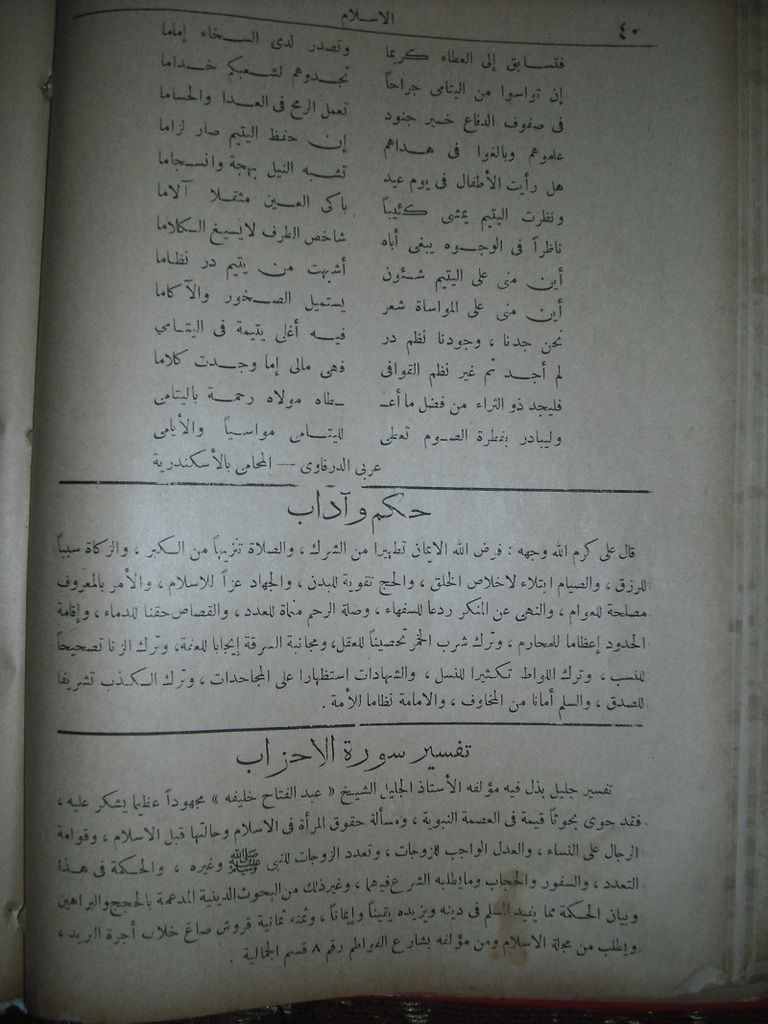 ٤٠
الاسلام
فتسابق إلى العطاء كريما وتصدر لدى السخاء إماما
إن تواسوا من اليتامى جراحاً تجدوهم لشعبكم خداما
فى صفوف الدفاع خير جنود تعمل الرمح فى العدا والحساما
علموهم وبالغوا فى هداهم إن حفظ اليتيم صار لزاما
هل رأيت الأطفال فى يوم عيد تشبه النيل بهجة وانسجاما
ونظرت اليتيم يمشى كئيباً باكى العين مثقلا آلاما
ناظراً فى الوجوه يبغى أباه شاخص الطرف لايسيغ الكلاما
أين منى على اليتيم شئون أشبهت من يتيم در نظاما
أين منى على المواساة شعر يستميل الصخور والآكاما
نحن جدنا ، وجودنا نظم در فيه أغلى يتيمة فى اليتامى
لم أجد ثم غير نظم القوافى فهى مالى إما وجدت كلاما
فليجد ذو الثراء من فضل ما أعـ ـطاه مولاه رحمة باليتامى
وليبادر بفطرة الصوم تعطى لليتامى مواسياً والأيامى
عربى الدرقاوى — المحامى بالأسكندرية
حكم وآداب
قال على كرم الله وجهه : فرض الله الايمان تطهيرا من الشرك ، والصلاة تنزيهاً من الكبر ، والزكاة سبباً
للرزق ، والصيام ابتلاء لاخلاص الخلق ، والحج تقوية للبدن ، والجهاد عزاً للاسلام ، والأمر بالمعروف
مصلحة للعوام ، والنهى عن المنكر ردعا للسفهاء ، وصلة الرحم منماة للعدد ، والقصاص حقنا للدماء ، وإقامة
الحدود إعظاما للمحارم ، وترك شرب الخمر تحصيناً للعقل، ومجانبة السرقة إيجابا للعفة، وترك الزنا تصحيحاً
للنسب ، وترك اللواط تكثيرا للنسل ، والشهادات استظهارا على المجاحدات ، وترك الكذب تشريفا
للصدق ، والسلم أمانا من المخاوف ، والامامة نظاما للأمة .
تفسير سورة الاحزاب
تفسير جليل بذل فيه مؤلفه الأستاذ الجليل الشيخ « عبد الفتاح خليفه » مجهوداً عظيما يشكر عليه ،
فقد حوى بحوثاً قيمة فى العصمة النبوية ، ومسألة حقوق المرأة فى الاسلام وحالتها قبل الاسلام ، وقوامة
الرجال على النساء ، والعدل الواجب للزوجات ، وتعدد الزوجات للنبى ﷺ وغيره ، والحكمة فى هذا
التعدد ، والسفور والحجاب ومايطلبه الشرع فيهما ، وغيرذلك من البحوث الدينية المدعمة بالحجج والبراهين
وبيان الحكمة مما يفيد المسلم فى دينه ويزيده يقيناً وإيماناً ، وثمنه ثمانية قروش صاغ خلاف أجرة البريد ،
ويطلب من مجلة الاسلام ومن مؤلفه بشارع رقم ٨ قسم الجمالية .